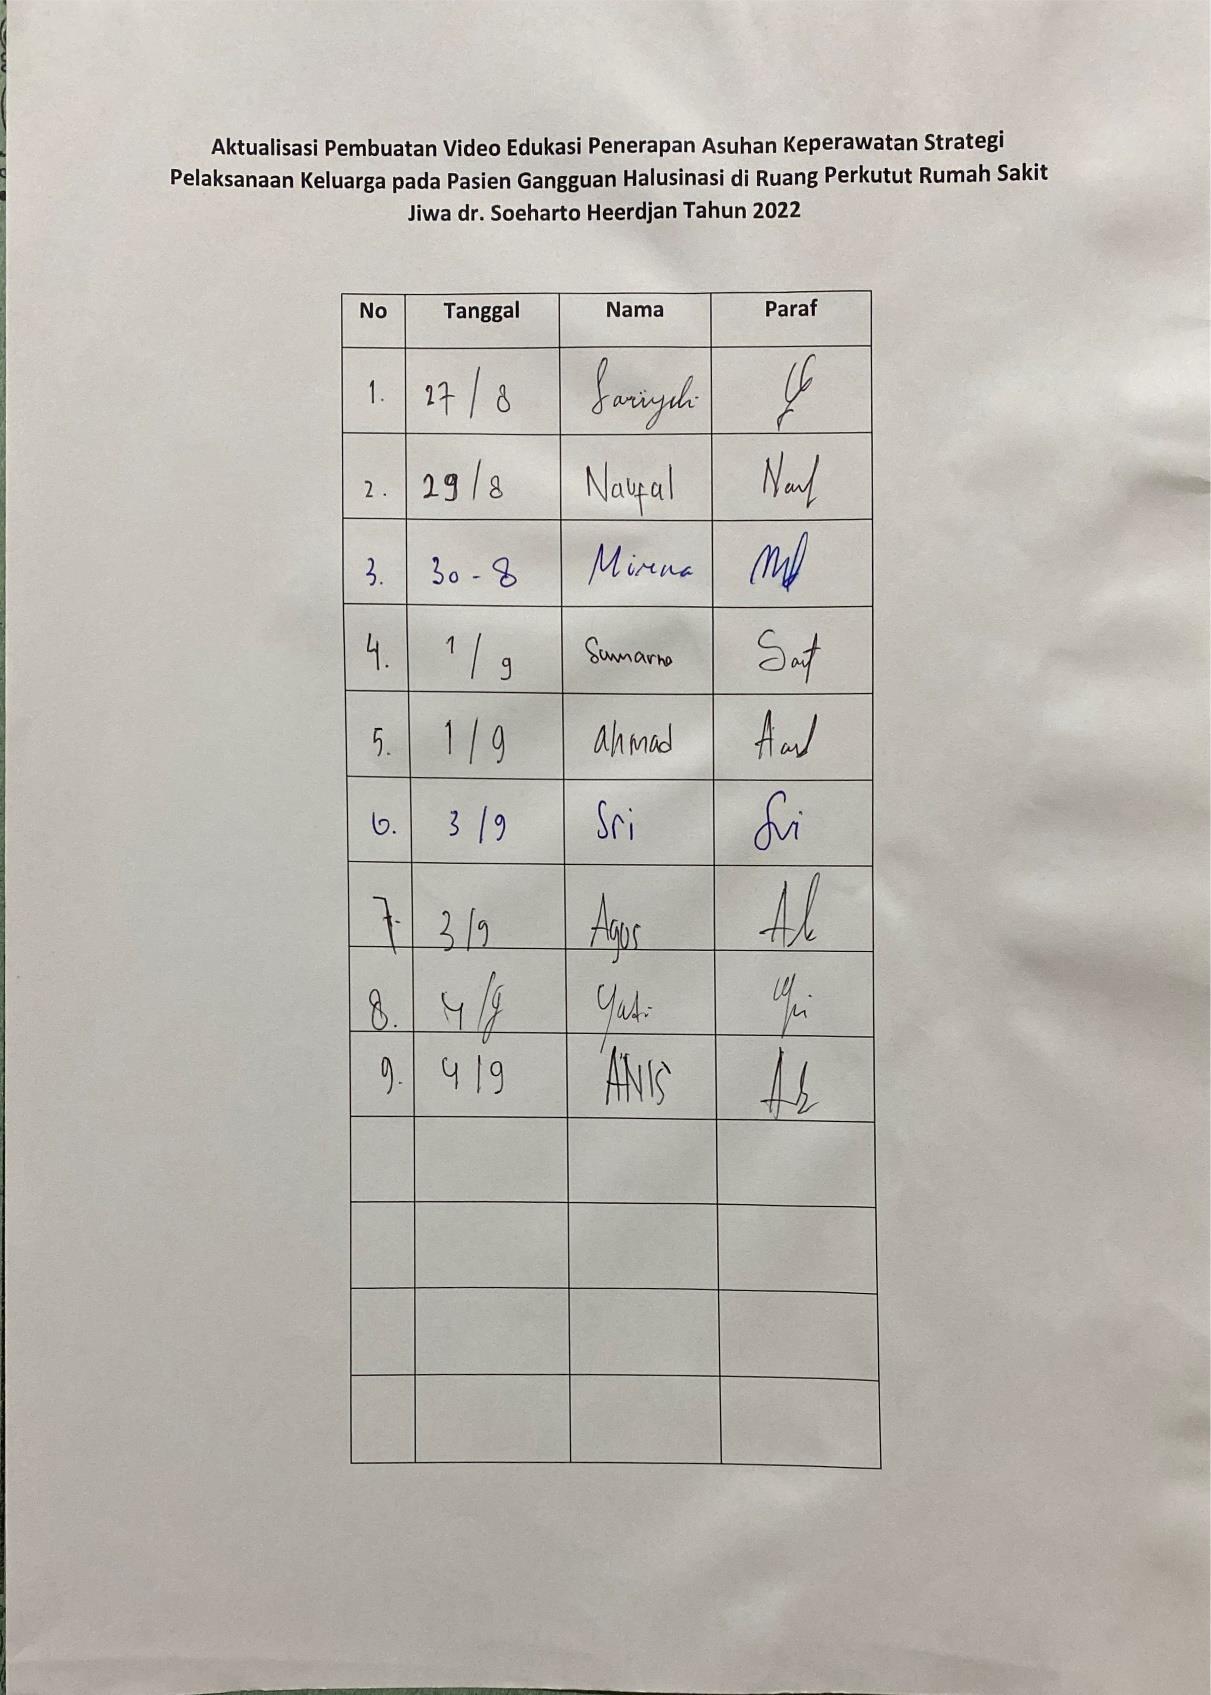 Aktualisasi Pembuatan Video Edukasi Penerapan Asuhan Keperawatan Strategi
Pelaksanaan Keluarga pada Pasien Gangguan Halusinasi di Ruang Perkutut Rumah Sakit
Jiwa dr. Soeharto Heerdjan Tahun 2022
No Tanggal Nama Paraf
1. 27/8
2. 29/8 Naufal
3. 30-8 Mirena
4. 1/9 Sumarno
5. 1/9 ahmad
6. 3/9 Sri Sri
7. 3/9 Agus
8. 4/9 Yati
9. 4/9 ANIS